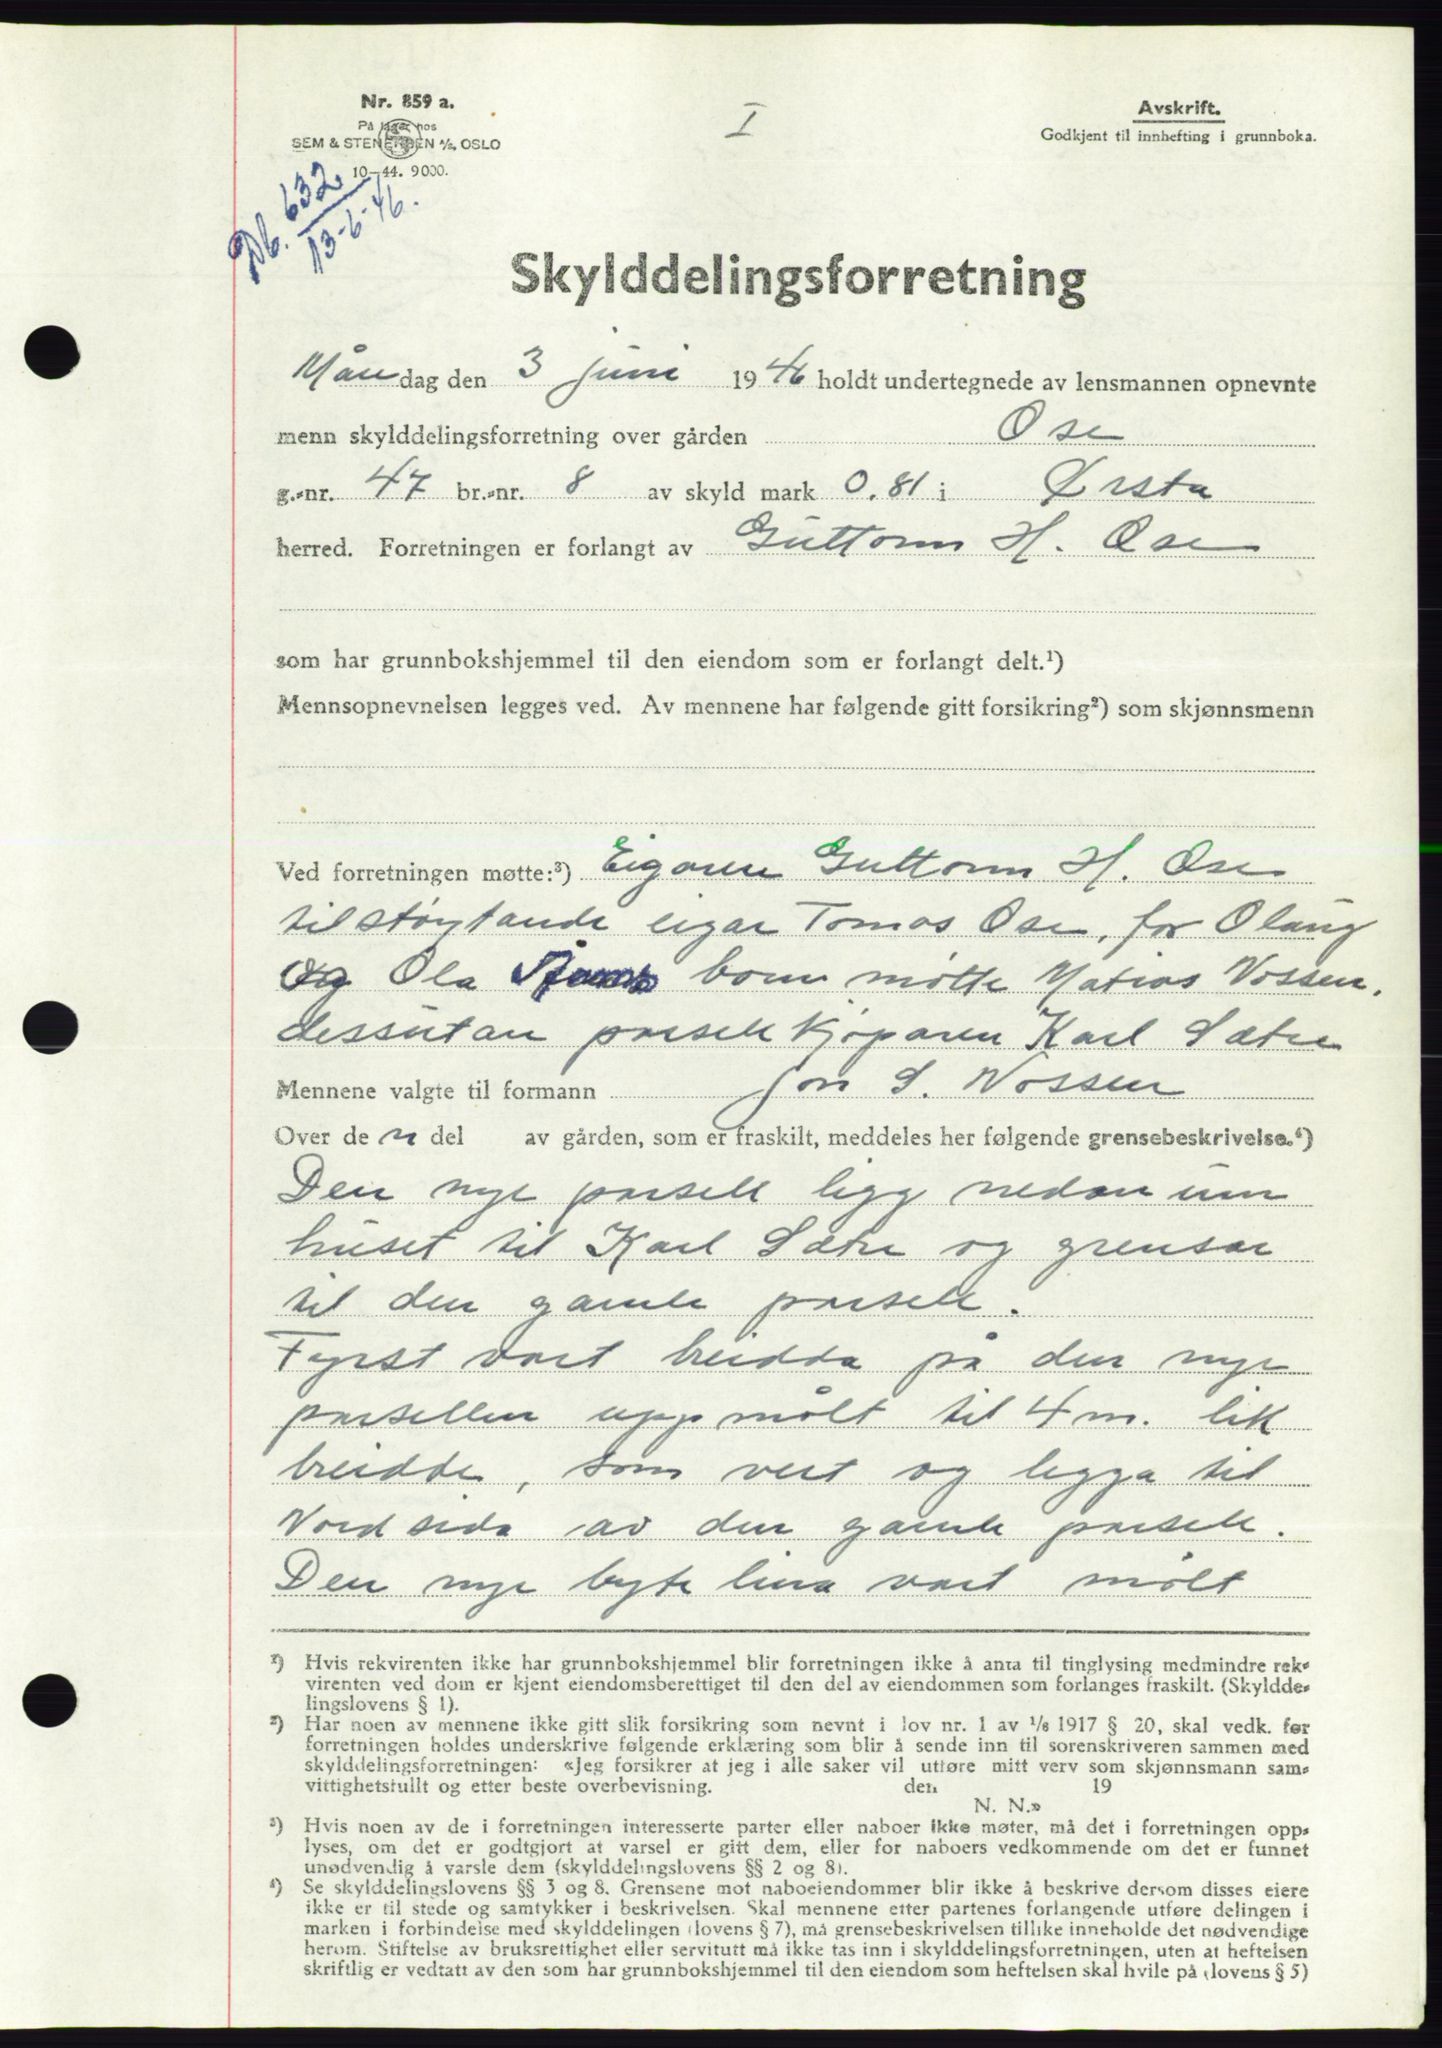 Nr. 859 a.
På lager hos
SEM & STENERSEN A/S, OSLO
10—44. 9000.
I
Avskrift.
Godkjent til innhefting i grunnboka.
Db. 632
13-6-46.
Skylddelingsforretning
Måndag den 3 juni 1946 holdt undertegnede av lensmannen opnevnte
menn skylddelingsforretning over gården Ose
g.-nr. 47 br.-nr. 8 av skyld mark 0.81 i Ørsta
herred. Forretningen er forlangt av Guttorm H. Ose
som har grunnbokshjemmel til den eiendom som er forlangt delt.¹)
Mennsopnevnelsen legges ved. Av mennene har følgende gitt forsikring²) som skjønnsmenn
Ved forretningen møtte:³) Eigaren Guttorm H. Ose
tilstøytande eigar Tomas Ose, for Olaug
og Ola born møtte Matias Vossen.
dessutan parsellkjøparen Karl Sætre
Mennene valgte til formann Jon S. Vossen
Over den del av gården, som er fraskilt, meddeles her følgende grensebeskrivelse.⁴)
Den nye parsell ligg nedan um
huset til Karl Sætre og grensar
til den gamle parsell.
Fyrst vart breidda på den nye
parsellen uppmålt til 4 m. lik
breidde, som vert og legga til
Nordsida av den gamle parsell.
Den nye byte lina vart målt
¹) Hvis rekvirenten ikke har grunnbokshjemmel blir forretningen ikke å anta til tinglysing medmindre rek-
virenten ved dom er kjent eiendomsberettiget til den del av eiendommen som forlanges fraskilt. (Skyldde-
lingslovens § 1).
²) Har noen av mennene ikke gitt slik forsikring som nevnt i lov nr. 1 av 1/6 1917 § 20, skal vedk. før
forretningen holdes underskrive følgende erklæring som blir å sende inn til sorenskriveren sammen med
skylddelingsforretningen: «Jeg forsikrer at jeg i alle saker vil utføre mitt verv som skjønnsmann sam-
vittighetsfullt og etter beste overbevisning. den 19
N. N.»
³) Hvis noen av de i forretningen interesserte parter eller naboer ikke møter, må det i forretningen opp-
lyses, om det er godtgjort at varsel er gitt dem, eller for naboers vedkommende om det er funnet
unødvendig å varsle dem (skylddelingslovens §§ 2 og 8).
⁴) Se skylddelingslovens §§ 3 og 8. Grensene mot naboeiendommer blir ikke å beskrive dersom disses eiere
ikke er til stede og samtykker i beskrivelsen. Skal mennene etter partenes forlangende utføre delingen i
marken i forbindelse med skylddelingen (lovens § 7), må grensebeskrivelsen tillike inneholde det nødvendige
herom. Stiftelse av bruksrettighet eller servitutt må ikke tas inn i skylddelingsforretningen, uten at heftelsen
skriftlig er vedtatt av den som har grunnbokshjemmel til den eiendom som heftelsen skal hvile på (lovens § 5)